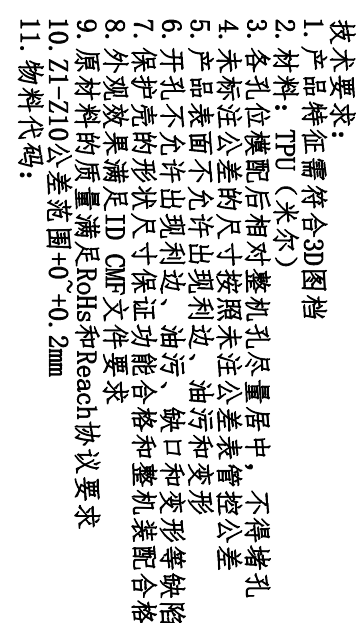 技术要求:
1.产品特征需符合3D图档
2.材料: TPU (米尔)
3.各孔位模配后相对整机孔尽量居中，不得堵孔
4.未标注公差的尺寸按照未注公差表管控公差
5.产品表面不允许出现利边、油污和变形
6.开孔不允许出现利边、油污、缺口和变形等缺陷
7.保护壳的形状尺寸保证功能合格和整机装配合格
8.外观效果满足ID CMF文件要求
9.原材料的质量满足RoHs和Reach协议要求
10.Z1-Z10公差范围+0~+0.2mm
11.物料代码: